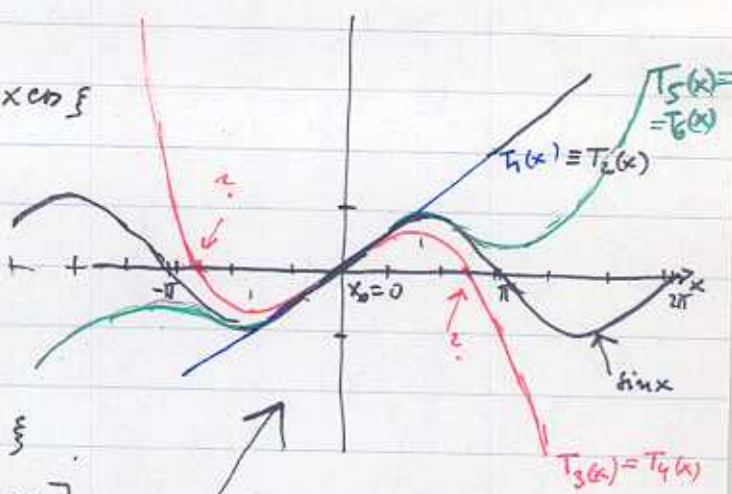 x cos ξ
T₅(x)=
=T₆(x)
T₁(x) ≡ T₂(x)
?
-π
x₀=0
π
2π
x
?
sin x
ξ
T₃(x)=T₄(x)